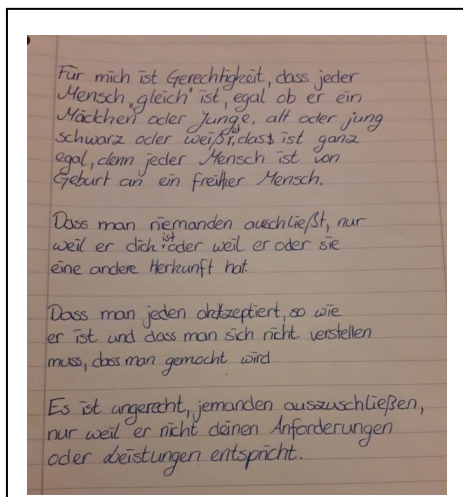 Für mich ist Gerechtigkeit, dass jeder
Mensch „gleich" ist, egal ob er ein
Mädchen oder Junge, alt oder jung
schwarz oder weiß ist, dass ist ganz
egal, denn jeder Mensch ist von
Geburt an ein freiher Mensch.
Dass man niemanden auschließt, nur
weil er dick ist oder weil er oder sie
eine andere Herkunft hat
Dass man jeden akzeptiert, so wie
er ist und dass man sich nicht verstellen
muss, dass man gemocht wird
Es ist ungerecht, jemanden auszuschließen,
nur weil er nicht deinen Anforderungen
oder Leistungen entspricht.